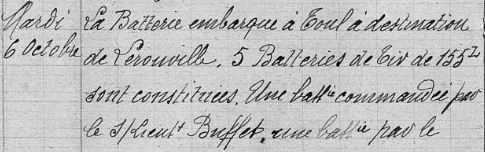 Mardi
6 Octobre
La Batterie embarque à Toul à destination
de Lerouville. 5 Batteries de Tir de 155L
sont constituées. Une battie commandée par
le S/Lieutt Buffet, une battie par le